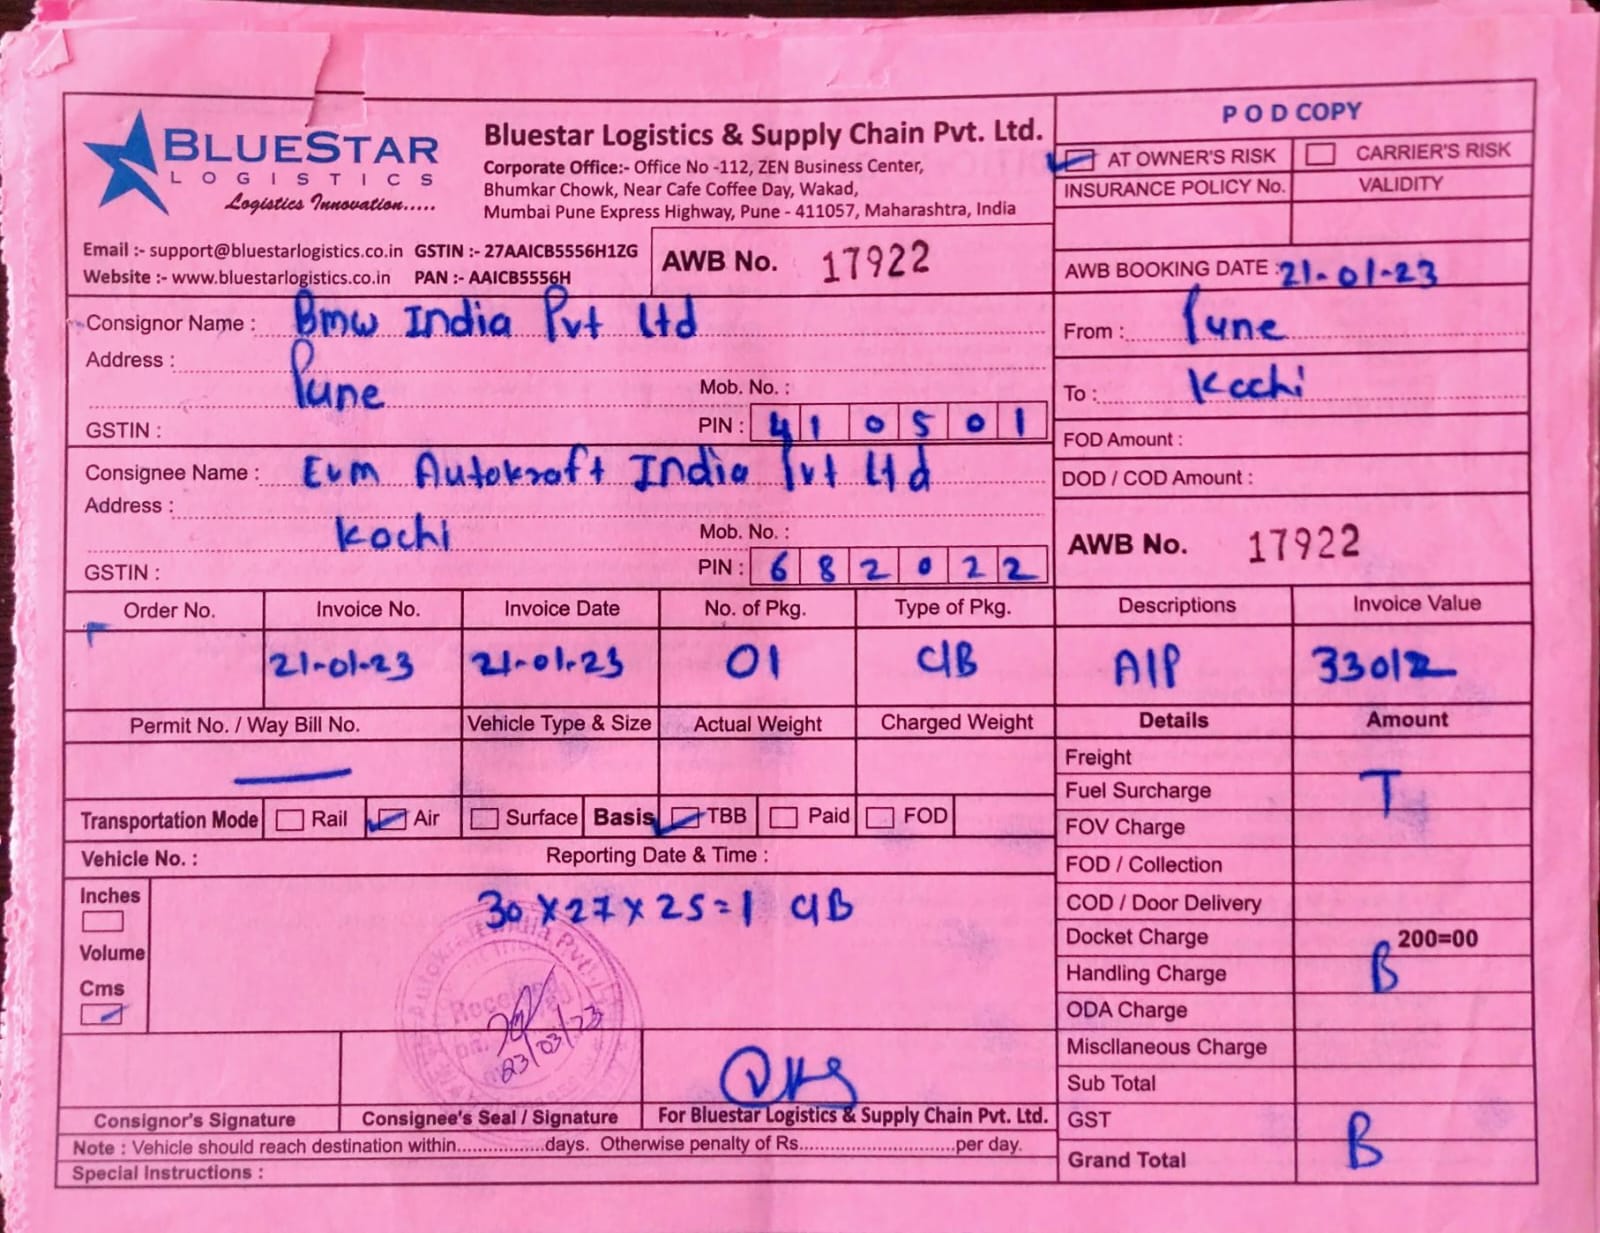 BLUESTAR
LOGISTICS
Logistics Innovation.....
Bluestar Logistics & Supply Chain Pvt. Ltd.
Corporate Office:- Office No -112, ZEN Business Center,
Bhumkar Chowk, Near Cafe Coffee Day, Wakad,
Mumbai Pune Express Highway, Pune - 411057, Maharashtra, India
Email :- support@bluestarlogistics.co.in GSTIN :- 27AAICB5556H1ZG
Website :- www.bluestarlogistics.co.in PAN :- AAICB5556H
AWB No. 17922
POD COPY
AT OWNER'S RISK CARRIER'S RISK
INSURANCE POLICY No. VALIDITY
AWB BOOKING DATE : 21-01-23
Consignor Name : Bmw India Pvt Ltd
Address :
Pune
Mob. No. :
GSTIN :
PIN : 410501
From : Pune
To : Kochi
FOD Amount :
DOD / COD Amount :
Consignee Name : Evm Autokraft India Pvt Ltd
Address :
Kochi
Mob. No. :
GSTIN :
PIN : 682022
AWB No. 17922
Order No. Invoice No. Invoice Date No. of Pkg. Type of Pkg. Descriptions Invoice Value
21-01-23 21-01-23 01 C/B A/P 33012
Permit No. / Way Bill No. Vehicle Type & Size Actual Weight Charged Weight Details Amount
Freight
Fuel Surcharge T
FOV Charge
FOD / Collection
COD / Door Delivery
Docket Charge 200=00
Handling Charge B
ODA Charge
Miscllaneous Charge
Sub Total
GST
Grand Total B
Transportation Mode Rail Air Surface Basis TBB Paid FOD
Vehicle No. : Reporting Date & Time :
Inches
Volume
Cms
30 x 27 x 25 = 1 C/B
Autokraft India Pvt
Received
23/03/23
Consignor's Signature Consignee's Seal / Signature For Bluestar Logistics & Supply Chain Pvt. Ltd.
Note : Vehicle should reach destination within.................days. Otherwise penalty of Rs..............................per day.
Special Instructions :